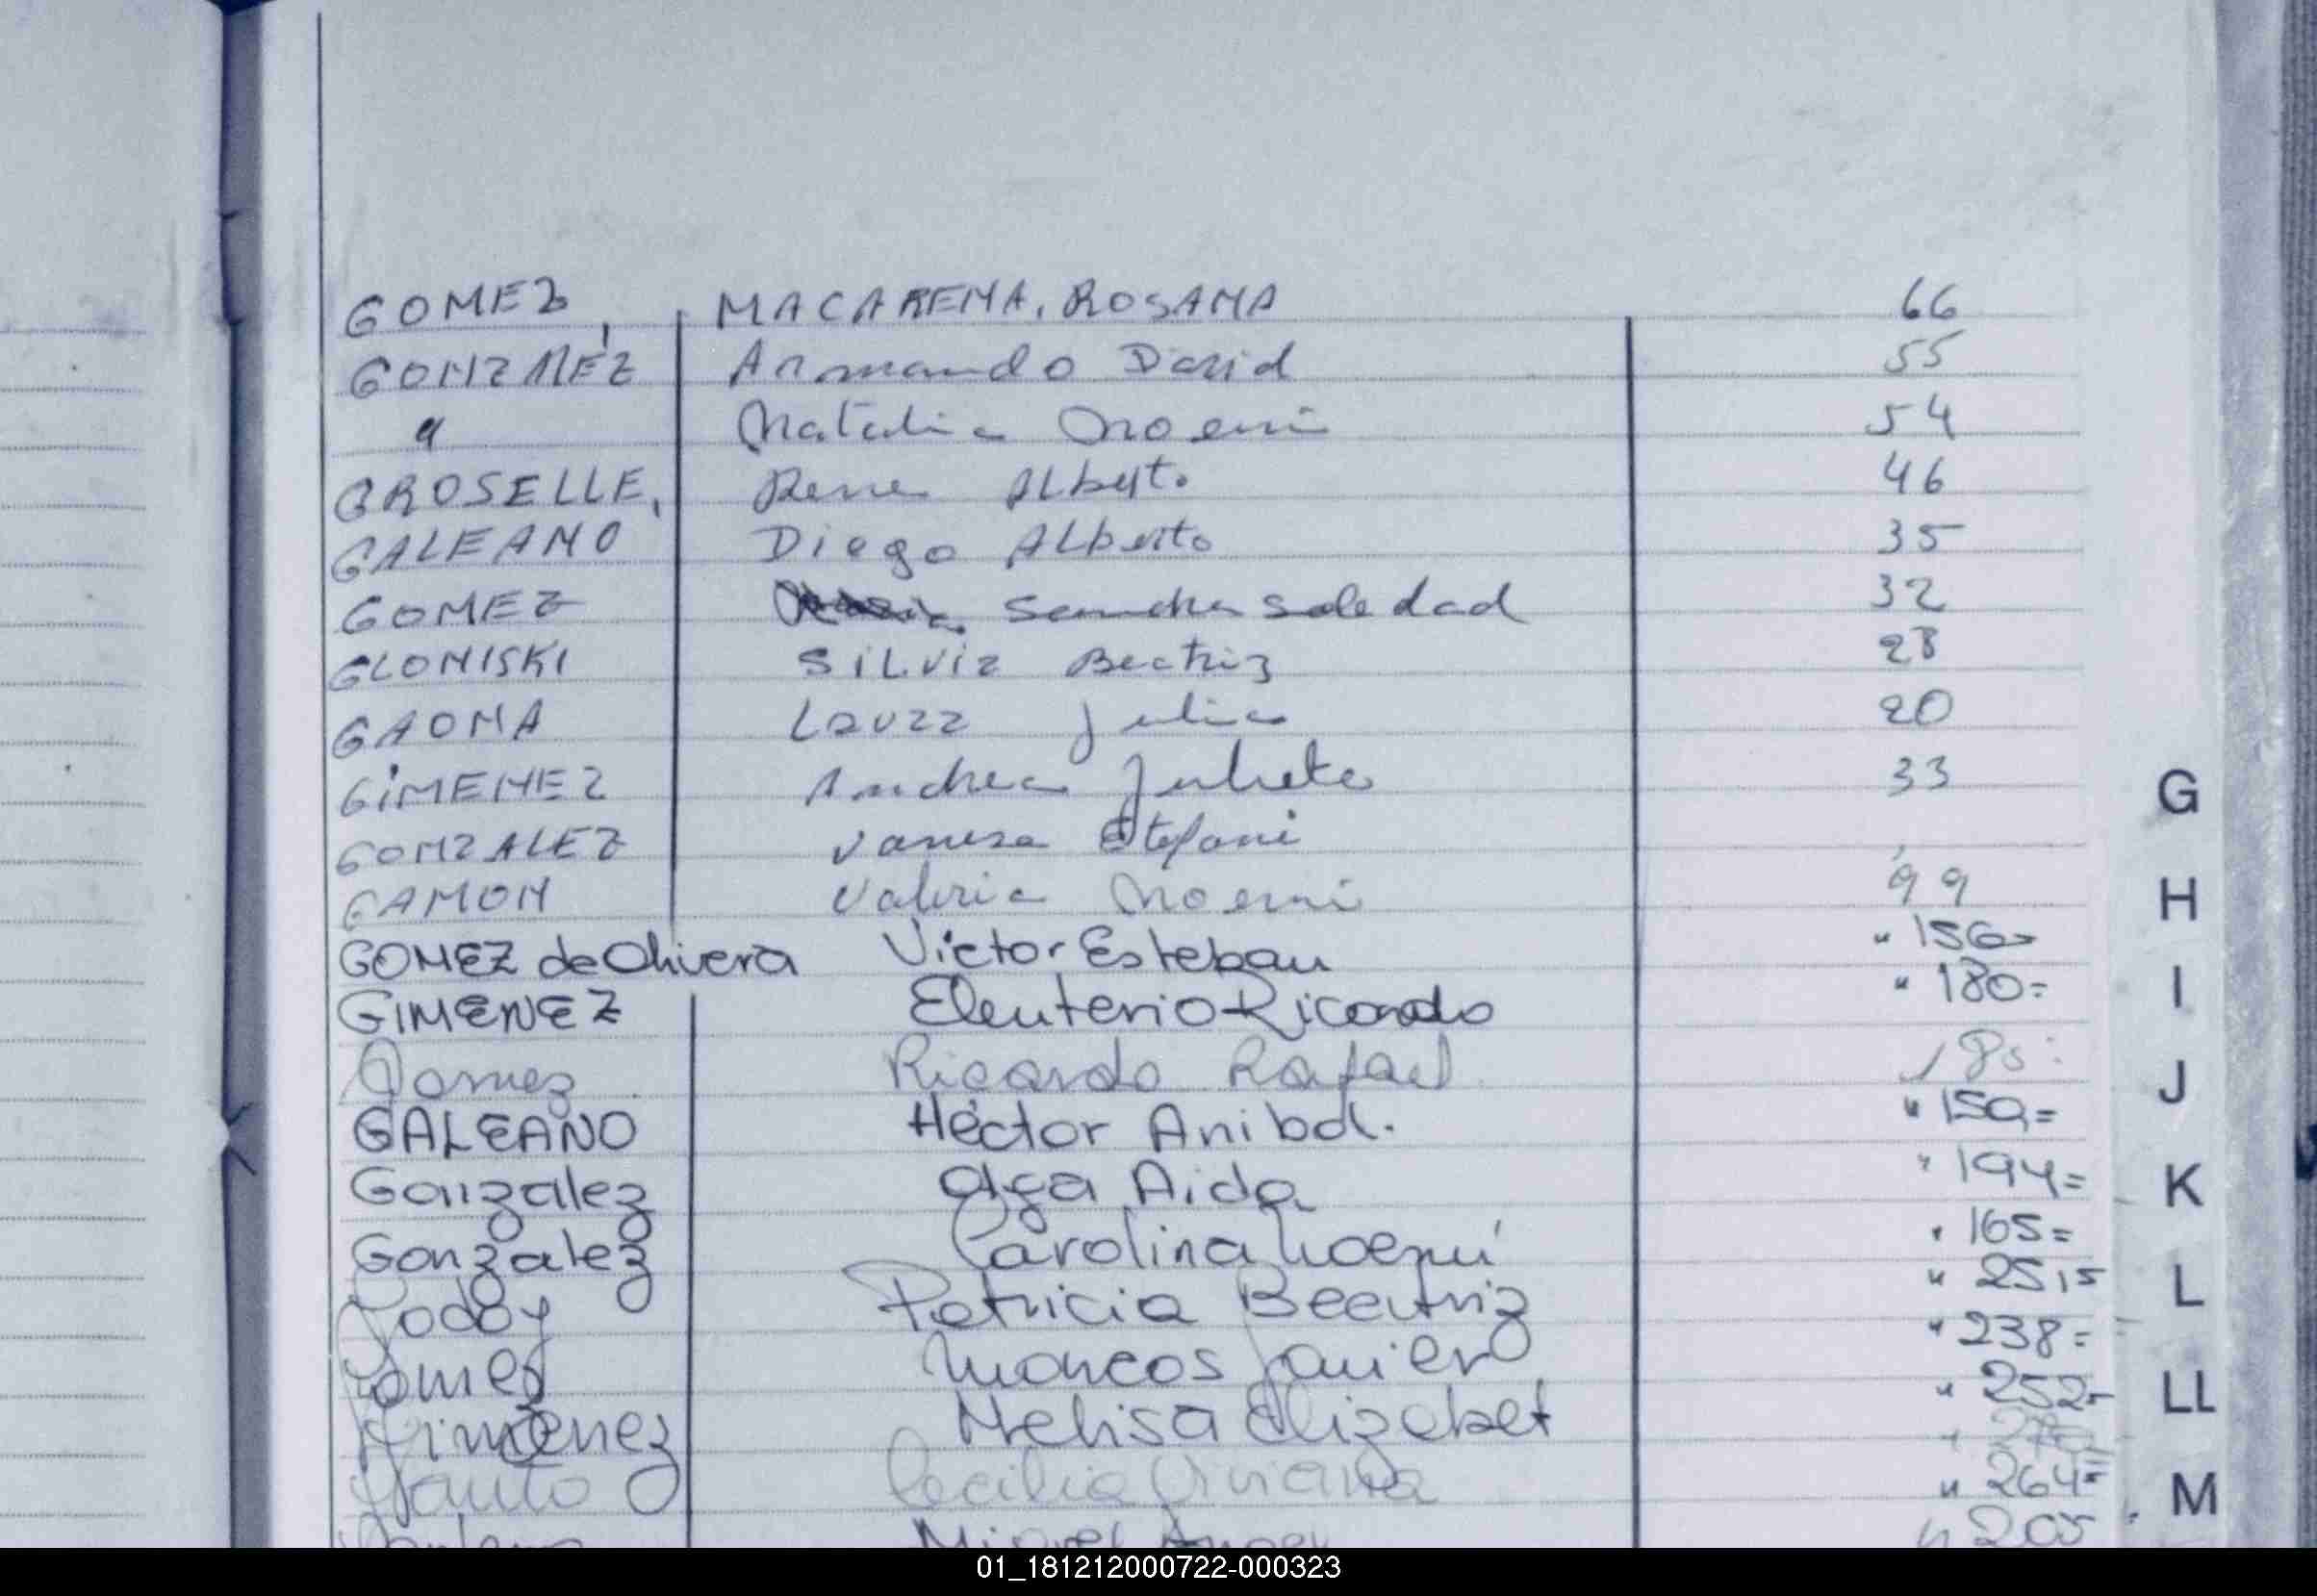 GOMEZ, MACARENA, ROSANA 66
GONZALEZ Armando David 55
" Natalia Noemi 54
GROSELLE, Rene Alberto 46
GALEANO Diego Alberto 35
GOMEZ Sandra Soledad 32
GLONISKI SILVIA Beatriz 28
GAONA Laura Julia 20
GIMENEZ Andrea Julieta 33
GONZALEZ Vanesa Estefani
GAMON Valeria Noemi 99
GOMEZ de Olivera Victor Esteban " 156=
GIMENEZ Eleuterio Ricardo " 180=
Gomez Ricardo Rafael
GALEANO Héctor Anibal. " 159=
Gonzalez Olga Aida " 194=
Gonzalez Carolina Noemí " 165=
Godoy Patricia Beatriz " 251=
Gomez Marcos Javier " 238=
Gimenez Melisa Elizabet " 252=
Gauto Cecilia Viviana " 264=
Miguel Angel " 205
G
H
I
J
K
L
LL
M
01_181212000722-000323